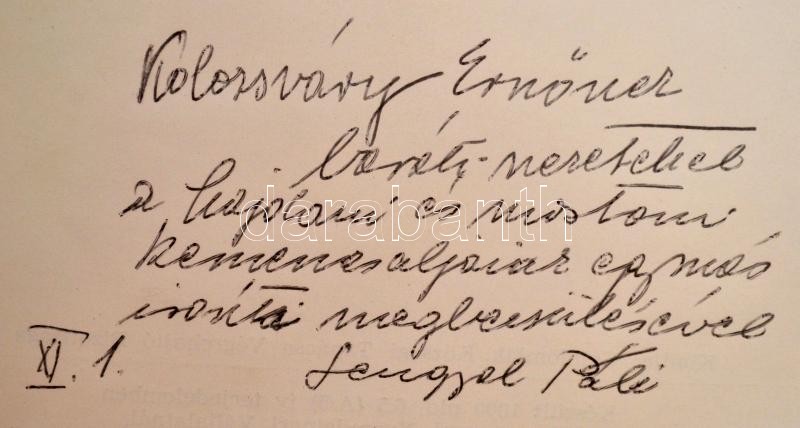 Kolozsváry Ernőnek
baráti szeretettel
a hajdani és mostani
kemenesaljaiak egymás
iránti megbecsülésével
XI. 1. Lengyel Pali
darabanth